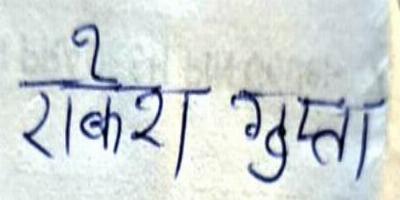 राकेश गुप्ता